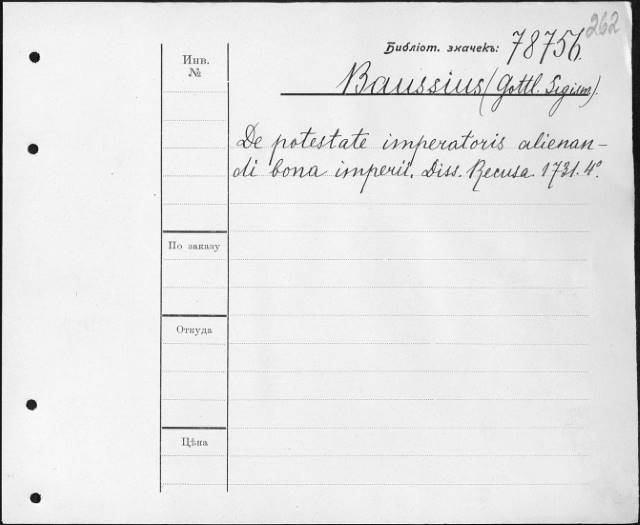 262
Библіот. значекъ: 78756.
Инв.
№
Baussius (Gottl. Sigism).
De potestate imperatoris alienan-
di bona imperii. Diss. Recusa 1731. 4°.
По заказу
Откуда
Цѣна